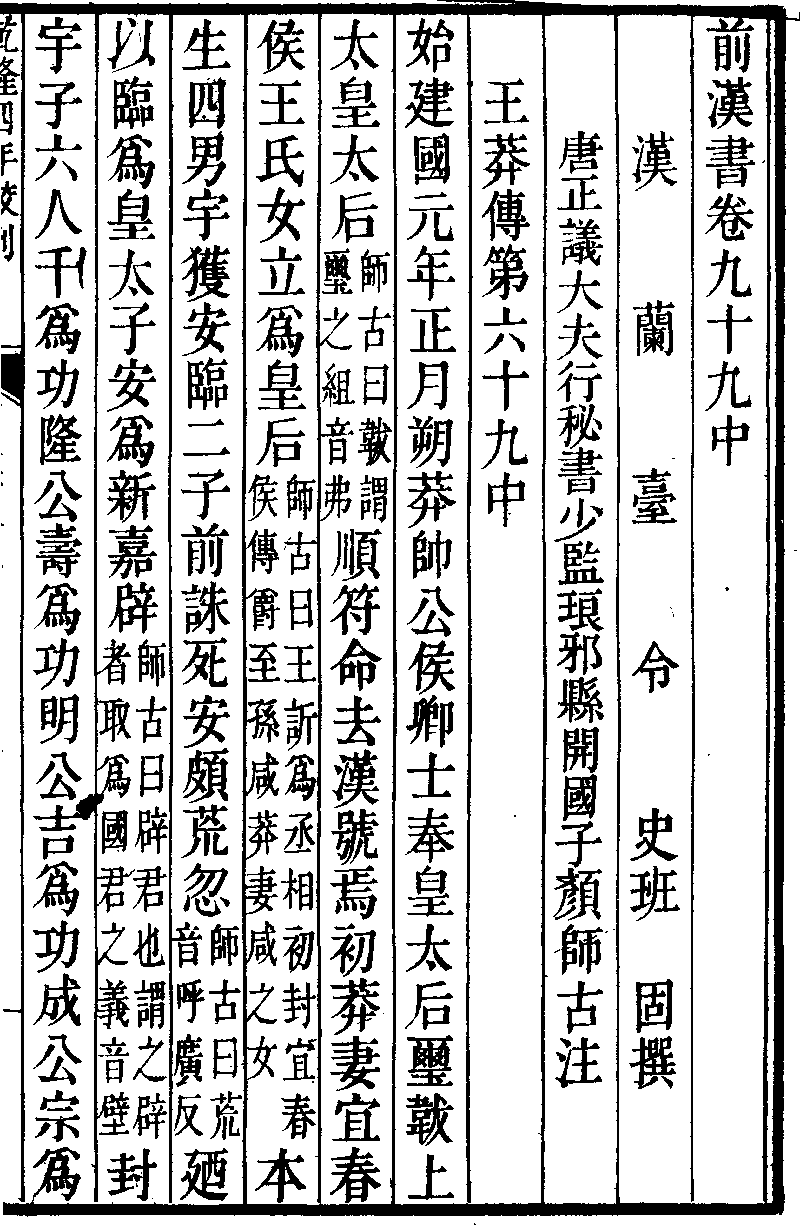 前漢書卷九十九中
漢蘭臺令史班固撰
唐正議大夫行秘書少監琅邪縣開國子顏師古注
王莽傳第六十九中
始建國元年正月朔莽帥公侯卿士奉皇太后璽韍上
太皇太后師古曰韍謂璽之組音弗順符命去漢號焉初莽妻宜春
侯王氏女立爲皇后師古曰王訢爲丞相初封宜春侯傳爵至孫咸莽妻咸之女本
生四男宇獲安臨二子前誅死安頗荒忽師古曰荒音呼廣反廼
以臨爲皇太子安爲新嘉辟師古曰辟君也謂之辟者取爲國君之義音壁封
宇子六人千爲功隆公壽爲功明公吉爲功成公宗爲
乾隆四年校刊